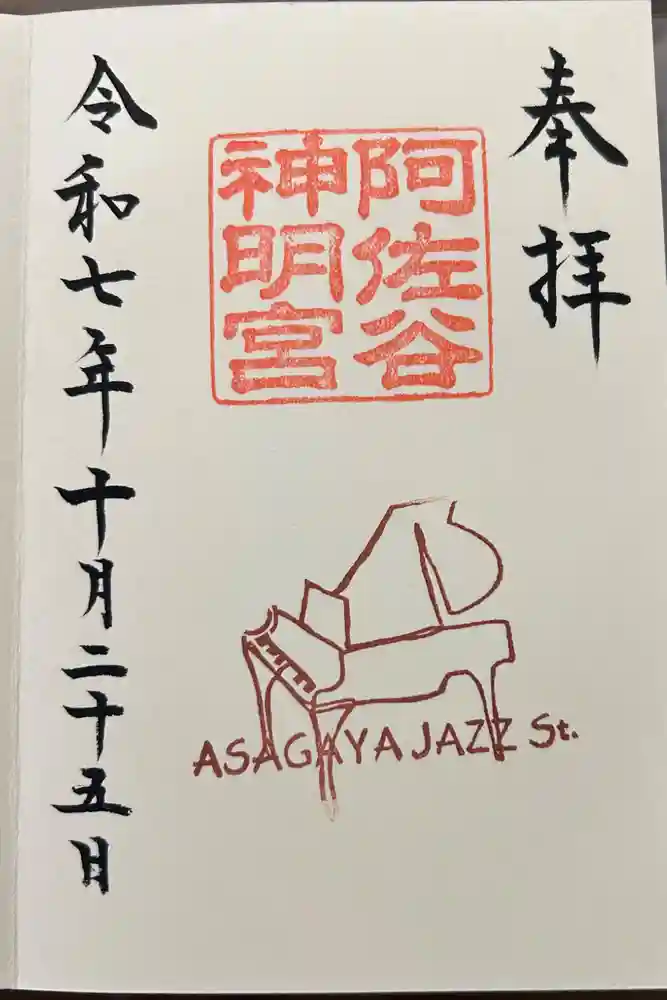 奉拝
阿佐谷
神明宮
ASAGAYA JAZZ St.
令和七年十月二十五日